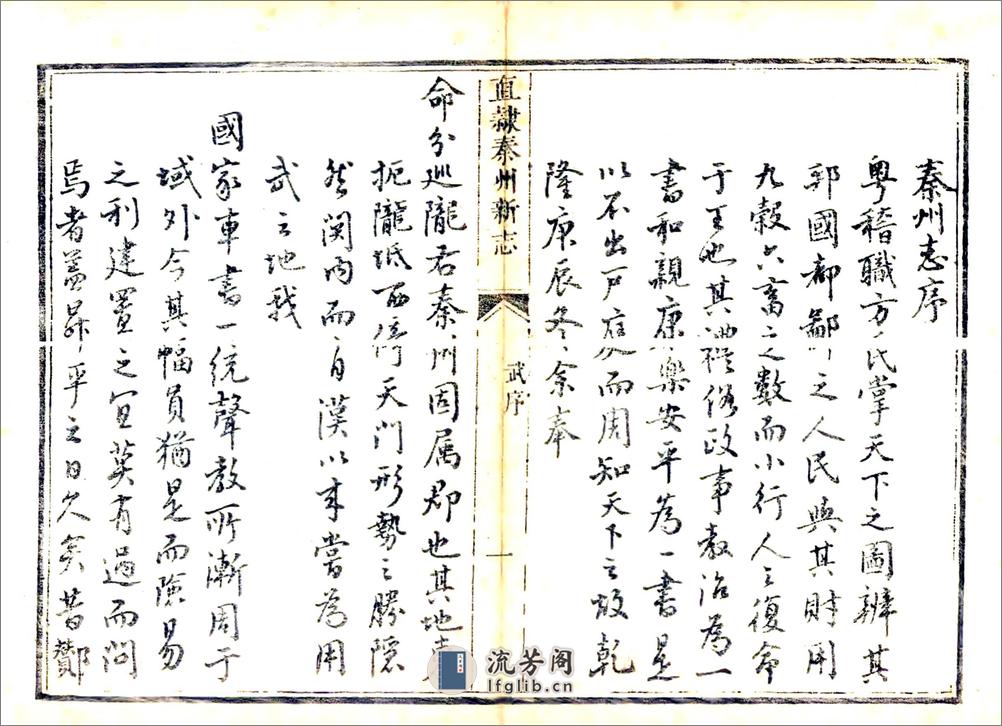 秦州志序
粤稽職方氏掌天下之圖辨其
邦國都鄙之人民與其財用
九穀六畜之數而小行人之復命
于王也其禮俗政事教治為一
書和親康樂安平為一書是
以不出戶庭而周知天下之故乾
隆庚辰冬余奉
直隸秦州新志
武序
一
命分巡隴右秦州固属郡也其地東
扼隴坻西倚天門形勢之勝隱
然関內而自漢以来嘗為用
武之地我
國家車書一統聲教所漸周于
域外今其幅員猶是而險易
之利建置之宜莫有過而問
焉者蓋昇平之日久矣昔酇
流芳阁
lfglib.cn